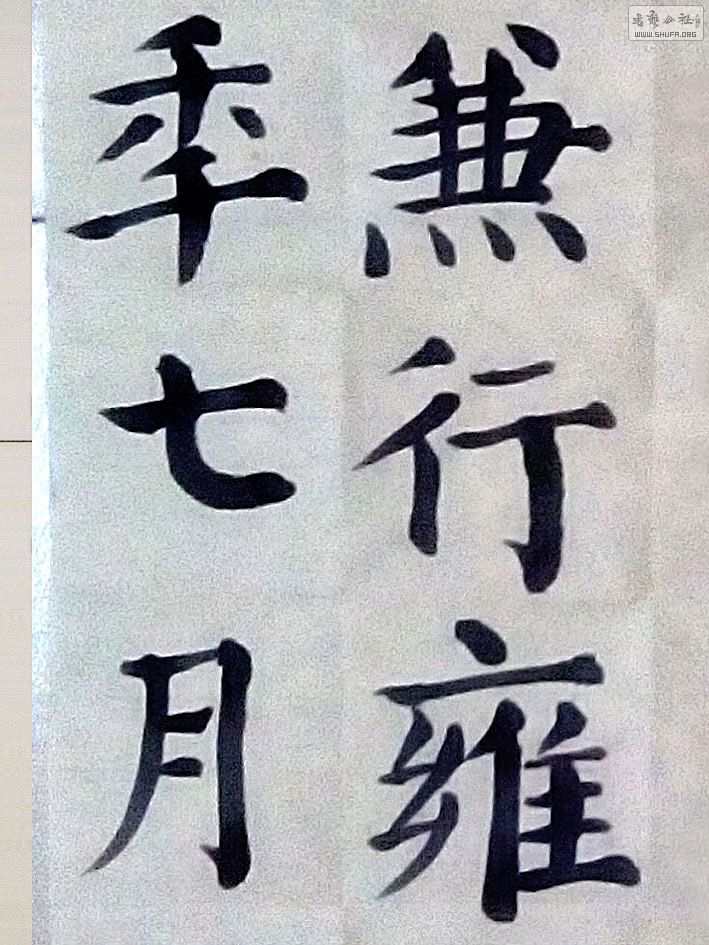 兼行雍
秊七月
書藝公社
WWW.SHUFA.ORG